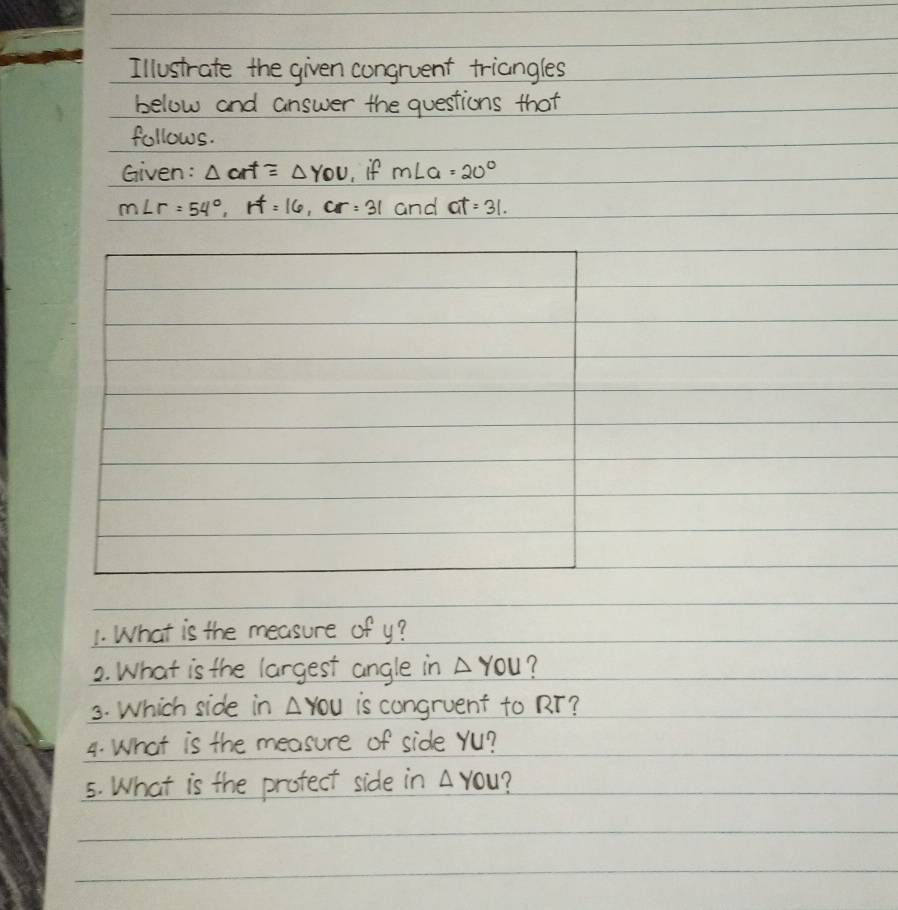 Illustrate the given congruent triangles
below and answer the questions that
follows.
Given: △ art ≅ △ YOU, if m∠a = 20°
m∠r = 54°, rt = 16, ar = 31 and at = 31.
1. What is the measure of y?
2. What is the largest angle in △ YOU?
3. Which side in △ YOU is congruent to RT?
4. What is the measure of side YU?
5. What is the protect side in △ YOU?